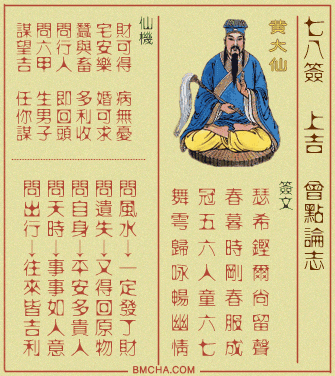 七八簽 上吉 曾點論志
黃大仙
簽文
瑟希鏗爾尚留聲
春暮時剛春服成
冠五六人童六七
舞雩歸咏暢幽情
仙機
財可得 病無憂
宅安樂 婚可求
蠶與畜 多利收
問行人 即回頭
問六甲 生男子
謀望吉 任你謀
問風水→一定發了財
問遺失→又得回原物
問自身→平安多貴人
問天時→事事如人意
問出行→往來皆吉利
BMCHA.COM